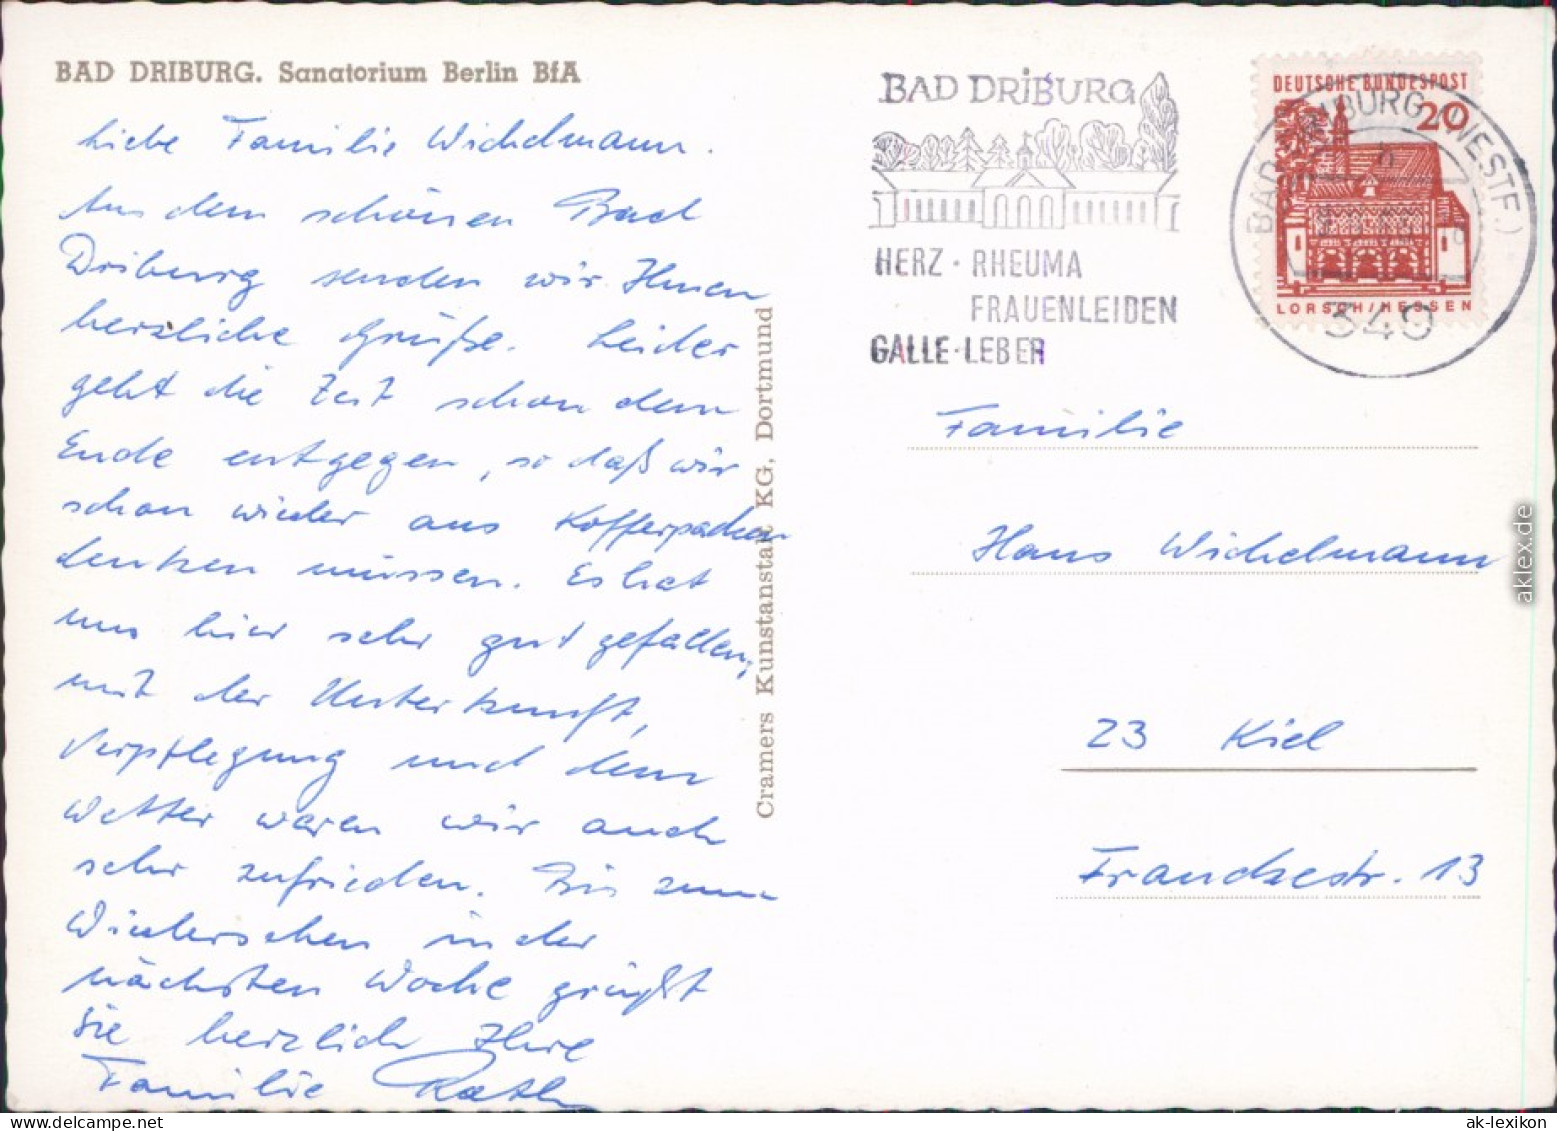 BAD DRIBURG. Sanatorium Berlin BfA
Liebe Familie Wichelmann.
Aus dem schönen Bad
Driburg senden wir Ihnen
herzliche Grüße. Leider
geht die Zeit schon dem
Ende entgegen, so daß wir
schon wieder ans Kofferpacken
denken müssen. Es hat
uns hier sehr gut gefallen,
mit der Unterkunft,
Verpflegung und dem
Wetter waren wir auch
sehr zufrieden. Bis zum
Wiedersehen in der
nächsten Woche grüßt
Sie herzlich Ihre
Familie Rath
Cramers Kunstanstalt KG, Dortmund
BAD DRIBURG
HERZ · RHEUMA
FRAUENLEIDEN
GALLE · LEBER
DEUTSCHE BUNDESPOST
20
LORSCH/HESSEN
BAD DRIBURG (WESTF.)
349
Familie
Hans Wichelmann
23 Kiel
Franckestr. 13
aklex.de
ak-lexikon